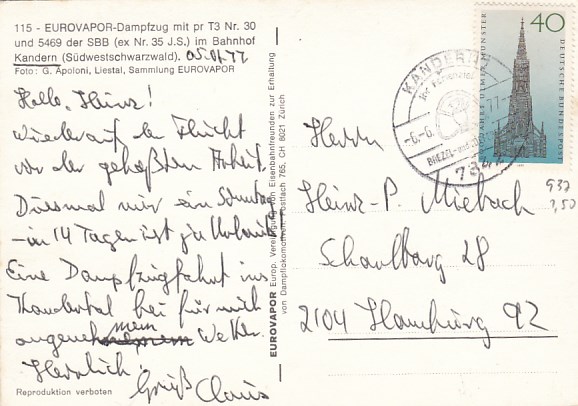 115 - EUROVAPOR-Dampfzug mit pr T3 Nr. 30
und 5469 der SBB (ex Nr. 35 J.S.) im Bahnhof
Kandern (Südwestschwarzwald). 05.06.77
Foto: G. Apoloni, Liestal, Sammlung EUROVAPOR
Hallo, Heinz!
Wieder auf der Flucht
vor der gehaßten Arbeit.
Diesmal nur ein Sonntag
- in 14 Tagen ist ja Urlaub
Eine Dampfzugfahrt ins
Kandertal bei für mich
angenehmem Wetter.
Herzlich.
Gruß Claus
Reproduktion verboten
EUROVAPOR Europ. Vereinigung von Eisenbahnfreunden zur Erhaltung
von Dampflokomotiven, Postfach 765, CH 8021 Zürich
KANDERN
BREZEL-
40
JAHRE ULMER MÜNSTER
DEUTSCHE BUNDESPOST
937
1,50
Herrn
Heinz-P. Miebach
Schaulbarg 28
2104 Hamburg 92